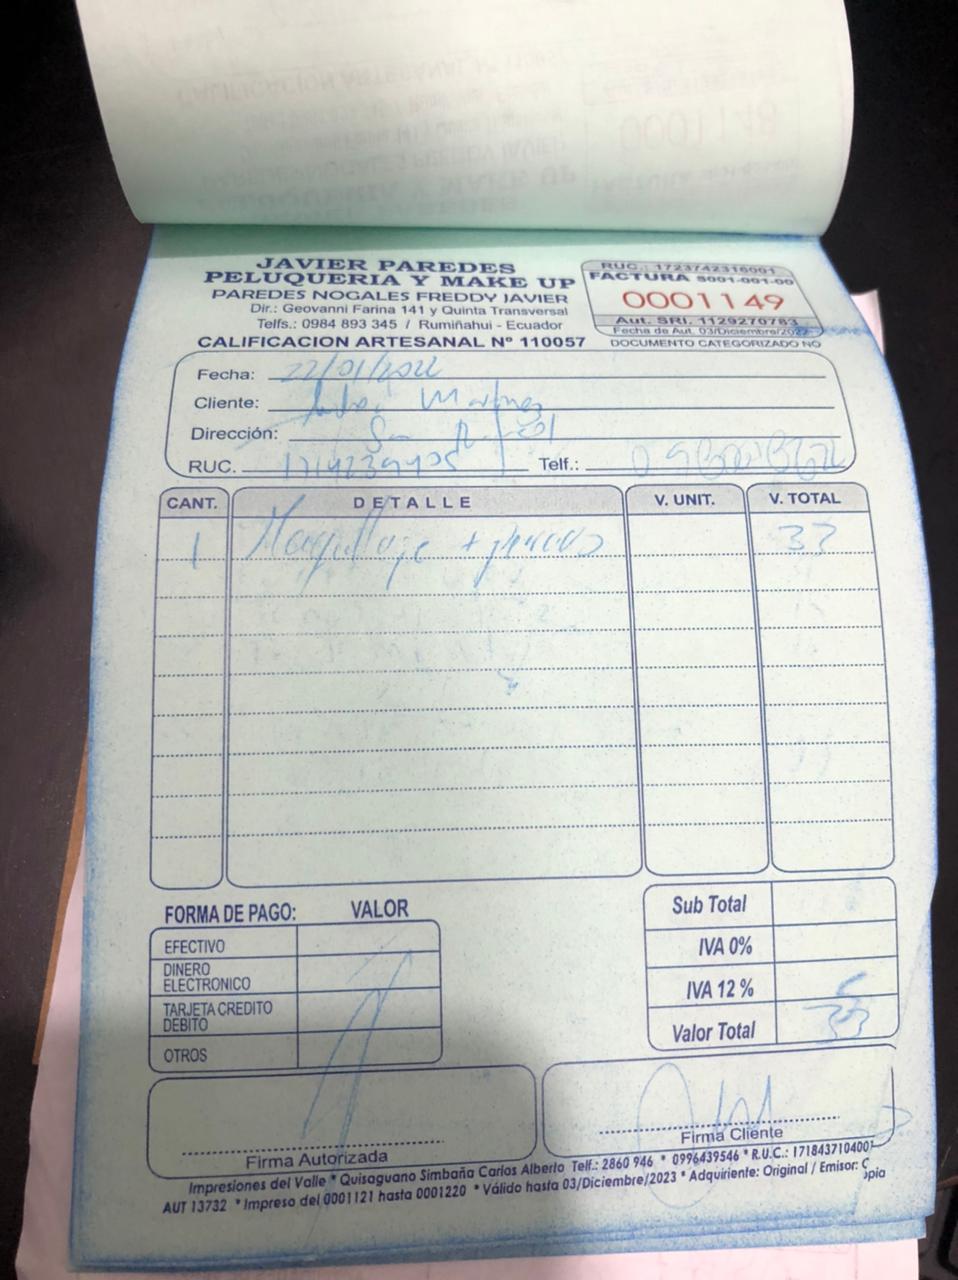 JAVIER PAREDES
PELUQUERIA Y MAKE UP
PAREDES NOGALES FREDDY JAVIER
Dir.: Geovanni Farina 141 y Quinta Transversal
Telfs.: 0984 893 345 / Rumiñahui - Ecuador
CALIFICACION ARTESANAL Nº 110057
RUC.: 1723742316001
FACTURA S001-001-00
0001149
Aut. SRI. 1129270783
Fecha de Aut. 03/Diciembre/2022
DOCUMENTO CATEGORIZADO NO
Fecha: 22/01/2022
Cliente:
Dirección: San Rafael
RUC.
Telf.:
CANT. DETALLE V. UNIT. V. TOTAL
1 Maquillaje + 33
FORMA DE PAGO: VALOR
EFECTIVO
DINERO ELECTRONICO
TARJETA CREDITO DEBITO
OTROS
Sub Total
IVA 0%
IVA 12 %
Valor Total 33
Firma Autorizada
Firma Cliente
Impresiones del Valle * Quisaguano Simbaña Carlos Alberto Telf.: 2860 946 * 0996439546 * R.U.C.: 1718437104001
AUT 13732 * Impreso del 0001121 hasta 0001220 * Válido hasta 03/Diciembre/2023 * Adquiriente: Original / Emisor: Copia